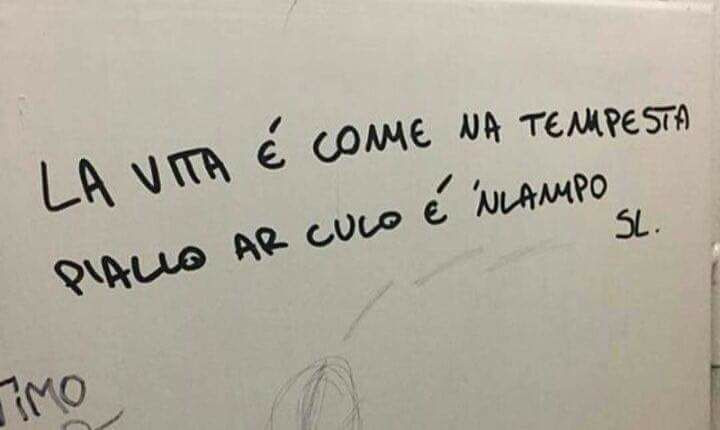 LA VITA É COME NA TEMPESTA
PIALLO AR CULO É 'NLAMPO
SL.
TIMO